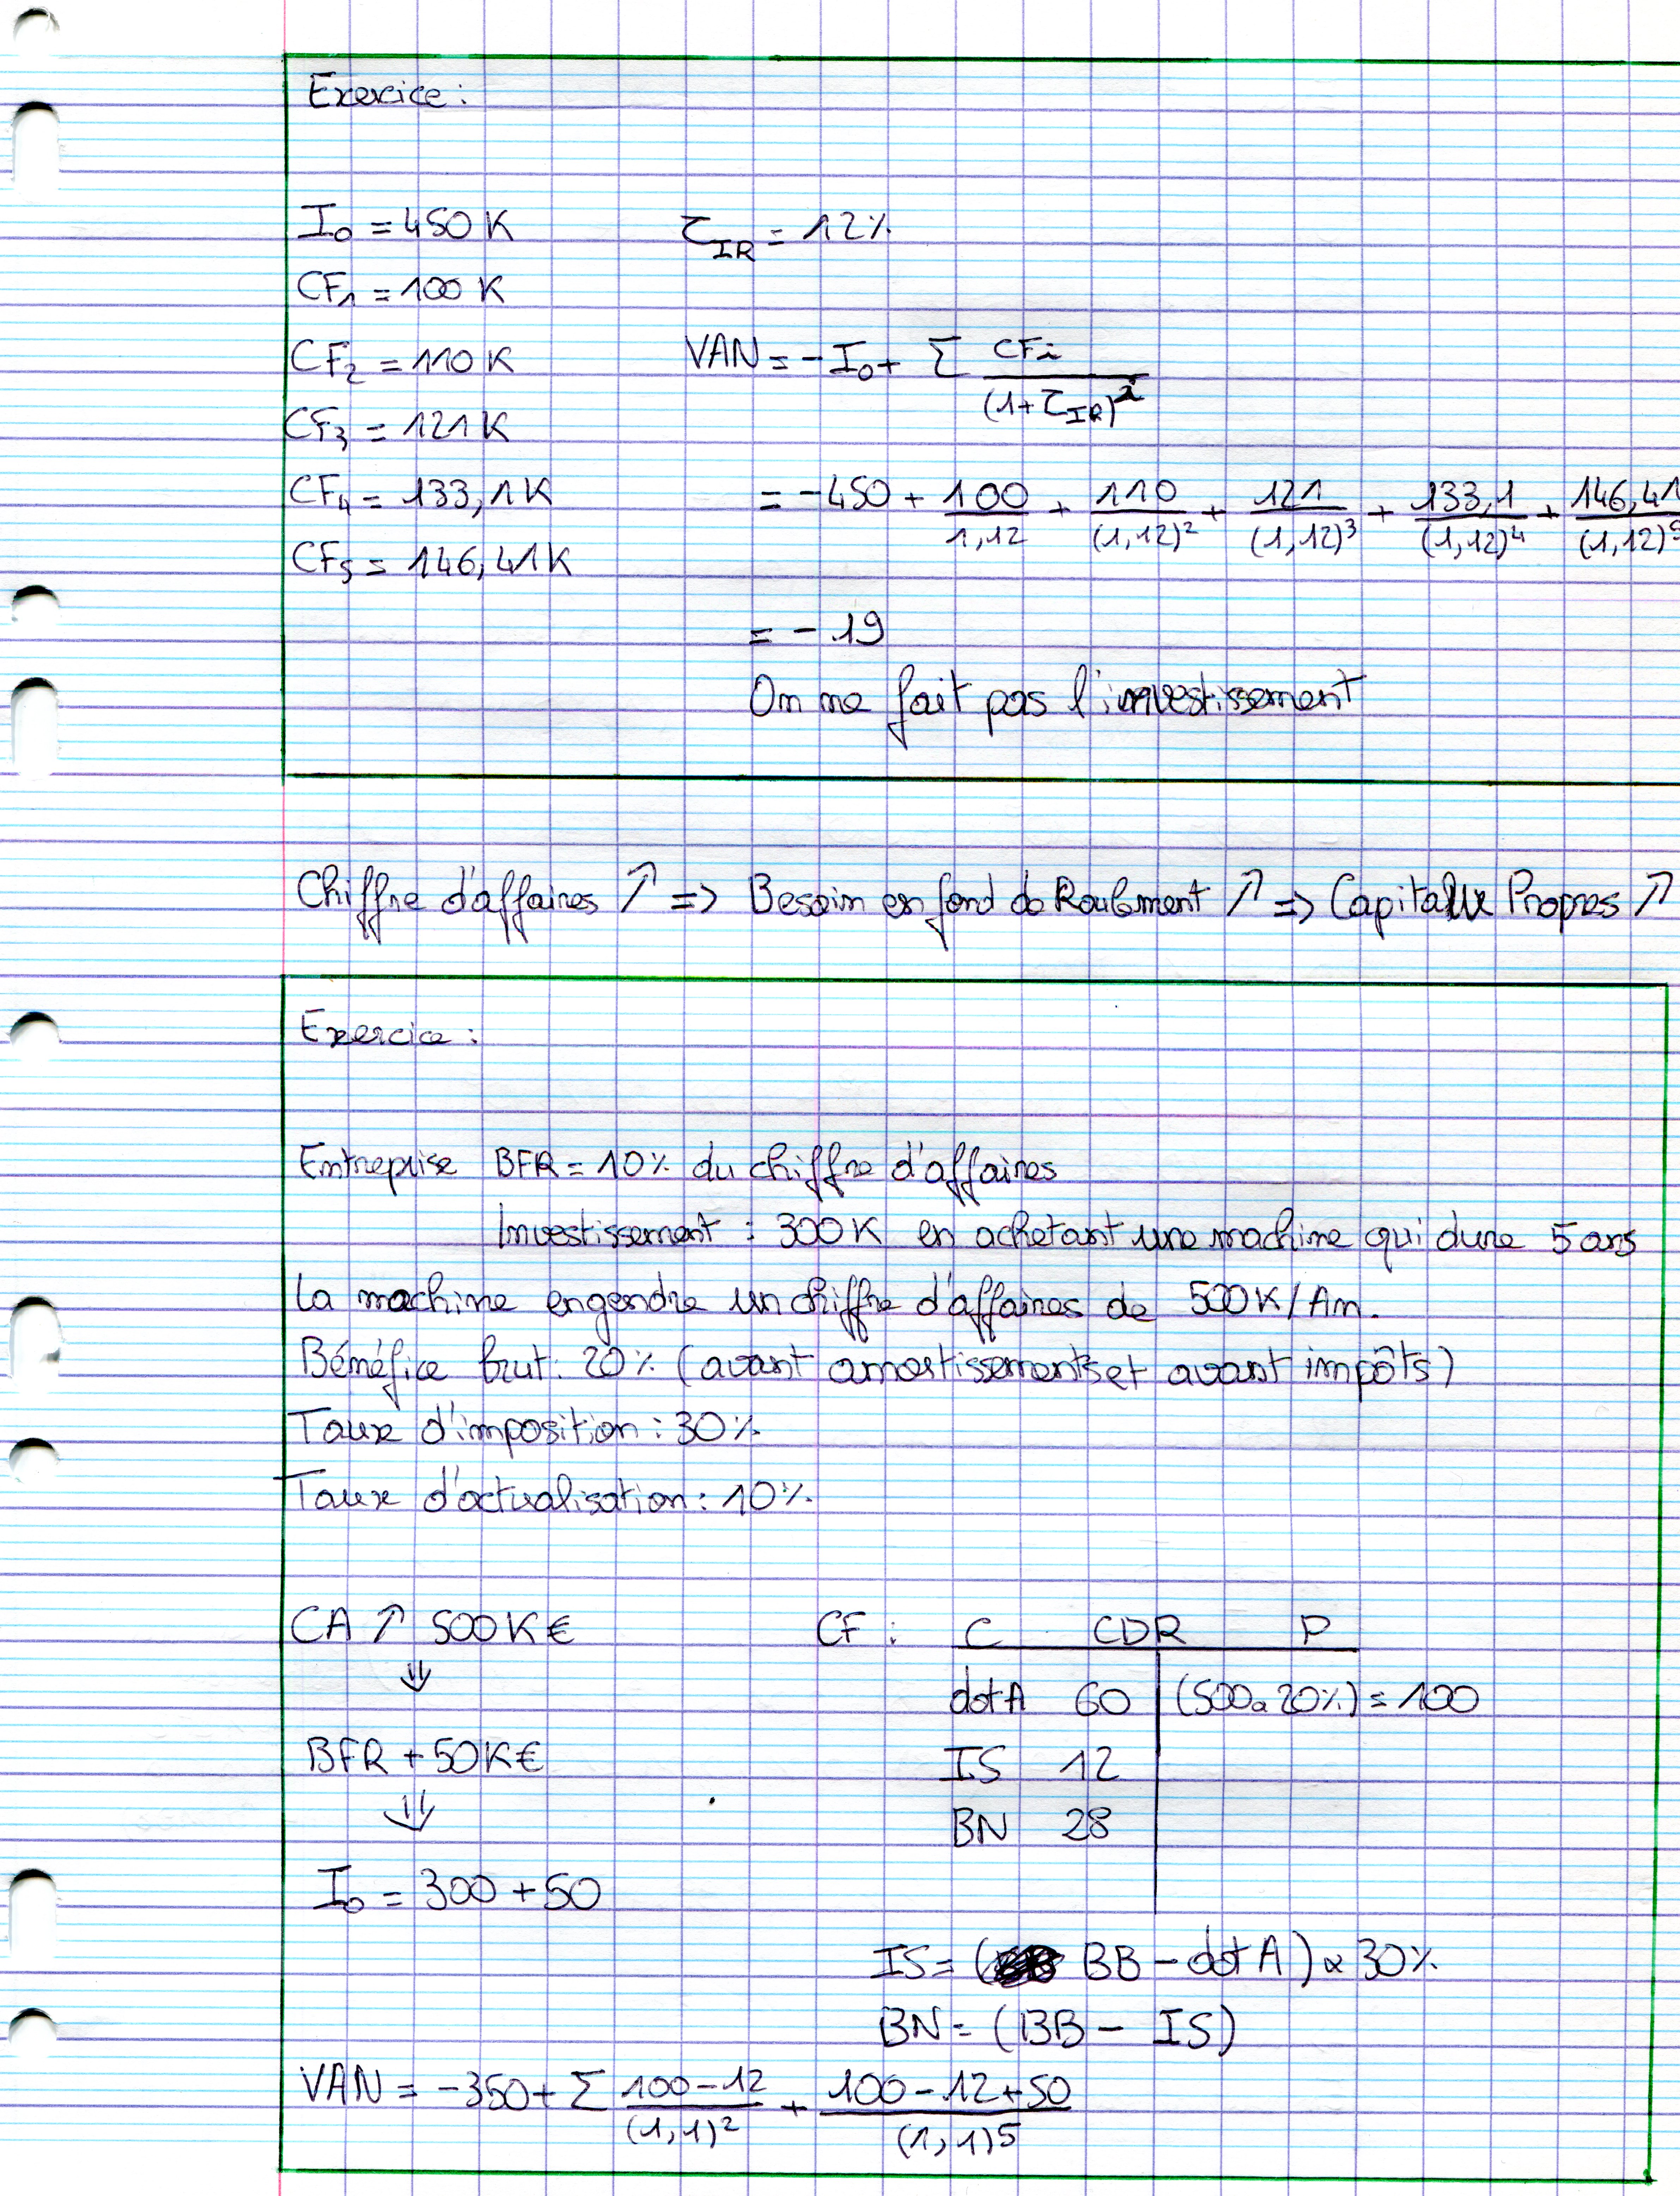 Exercice :
I₀ = 450 K
τ_IR = 12%
CF₁ = 100 K
CF₂ = 110 K
VAN = - I₀ + Σ CFi / (1 + τ_IR)^i
CF₃ = 121 K
CF₄ = 133,1 K
= - 450 + 100/1,12 + 110/(1,12)² + 121/(1,12)³ + 133,1/(1,12)⁴ + 146,41/(1,12)⁵
CF₅ = 146,41 K
= - 19
On ne fait pas l'investissement
Chiffre d'affaires ↗ => Besoin en fond de Roulement ↗ => Capitaux Propres ↗
Exercice :
Entreprise BFR = 10% du chiffre d'affaires
Investissement : 300 K en achetant une machine qui dure 5 ans
La machine engendre un chiffre d'affaires de 500 K / An.
Bénéfice brut : 20% (avant amortissements et avant impôts)
Taux d'imposition : 30%
Taux d'actualisation : 10%
CA ↗ 500 K €
⇓
BFR + 50 K €
⇓
I₀ = 300 + 50
CF : C CDR P
dot A 60 | (500 x 20%) = 100
IS 12
BN 28
IS = ( BB - dot A ) x 30%
BN = (BB - IS)
VAN = - 350 + Σ 100 - 12 / (1,1)² + 100 - 12 + 50 / (1,1)⁵